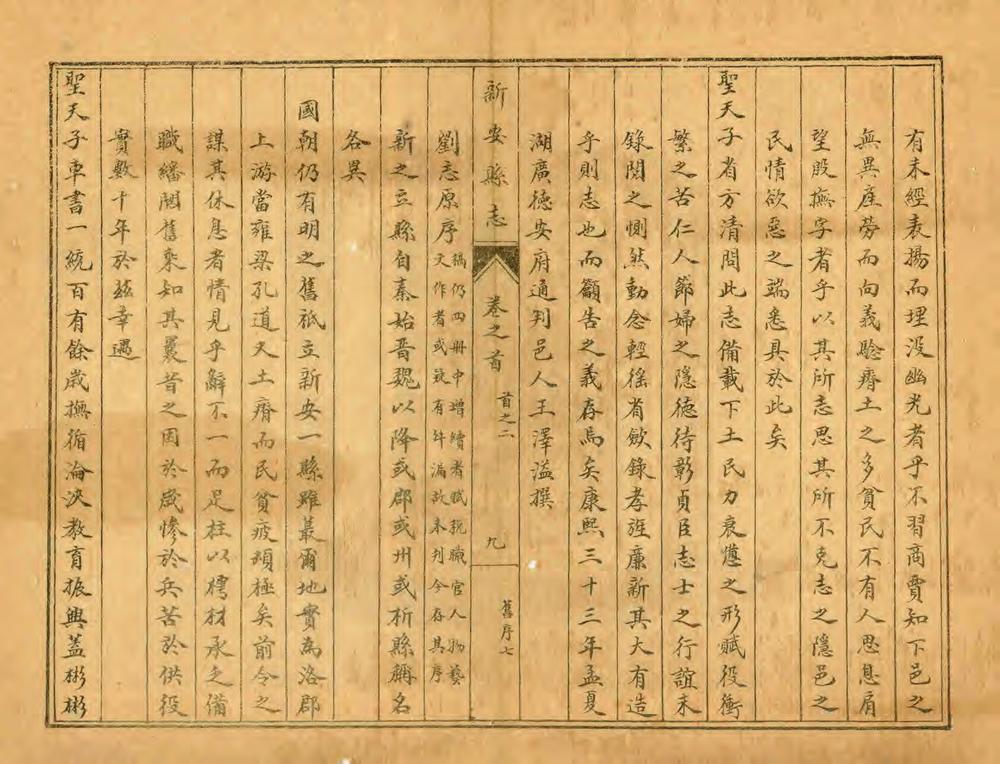 有未經表揚而埋沒幽光者乎不習商賈知下邑之
無異產勞而向義騐瘠土之多貧民不有人思息肩
望殷撫字者乎以其所志思其所不克志之隱邑之
民情欲惡之端悉具於此矣
聖天子省方清問此志備載下土民力衰憊之形賦役衝
繁之苦仁人節婦之隱德待彰貞臣志士之行誼未
錄閱之惻然動念輕徭省歛錄孝旌廉新其大有造
乎則志也而籲告之義存焉矣康熙三十三年孟夏
湖廣德安府通判邑人王澤溢撰
新安縣志 卷之首 首之二 九 舊序七
劉志原序
稿仍四册中增續者賦稅職官人物藝
文作者或疑有舛漏故未刋今存其序
新之立縣自秦始晋魏以降或郡或州或析縣稱名
各異
國朝仍有明之舊祇立新安一縣雖蕞爾地實為洛郡
上游當雍梁孔道又土瘠而民貧疲頹極矣前令之
謀其休息者情見乎辭不一而足柱以樗材承乏備
職繙閱舊乘知其曩昔之困於歲慘於兵苦於供役
實數十年於玆幸遇
聖天子車書一統百有餘歲撫循淪浹教育振興蓋彬彬